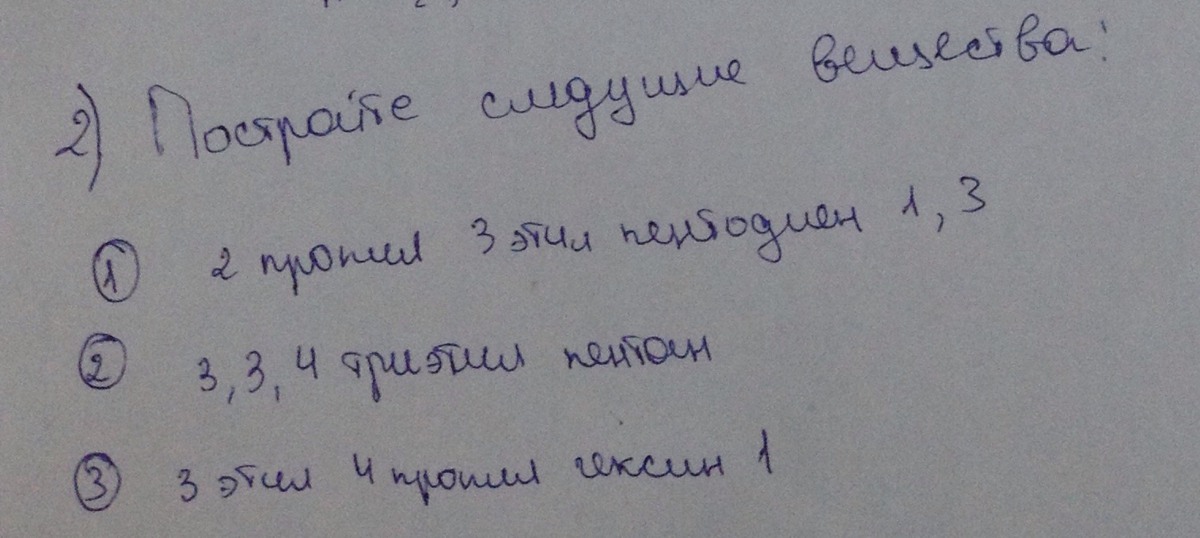 2) Постройте следущие вещества:
① 2 пропил 3 этил пентодиен 1, 3
② 3, 3, 4 триэтил пентан
③ 3 этил 4 пропил гексин 1